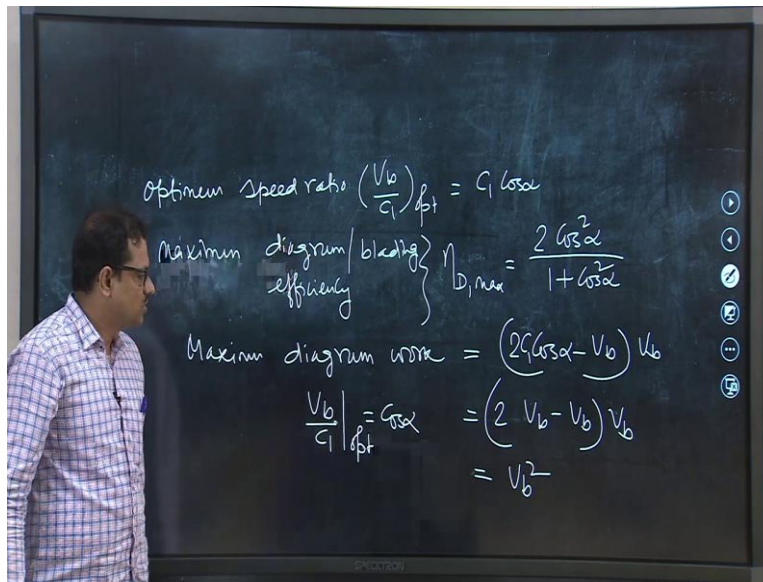 Optimum speed ratio (V_b/C_1)_opt = C_1 Cosα
Maximum diagram/blading efficiency } η_D,max = 2 Cos²α / 1 + Cos²α
Maximum diagram work = (2C_1Cosα - V_b) V_b
V_b/C_1 |_opt = Cosα = (2 V_b - V_b) V_b
= V_b²